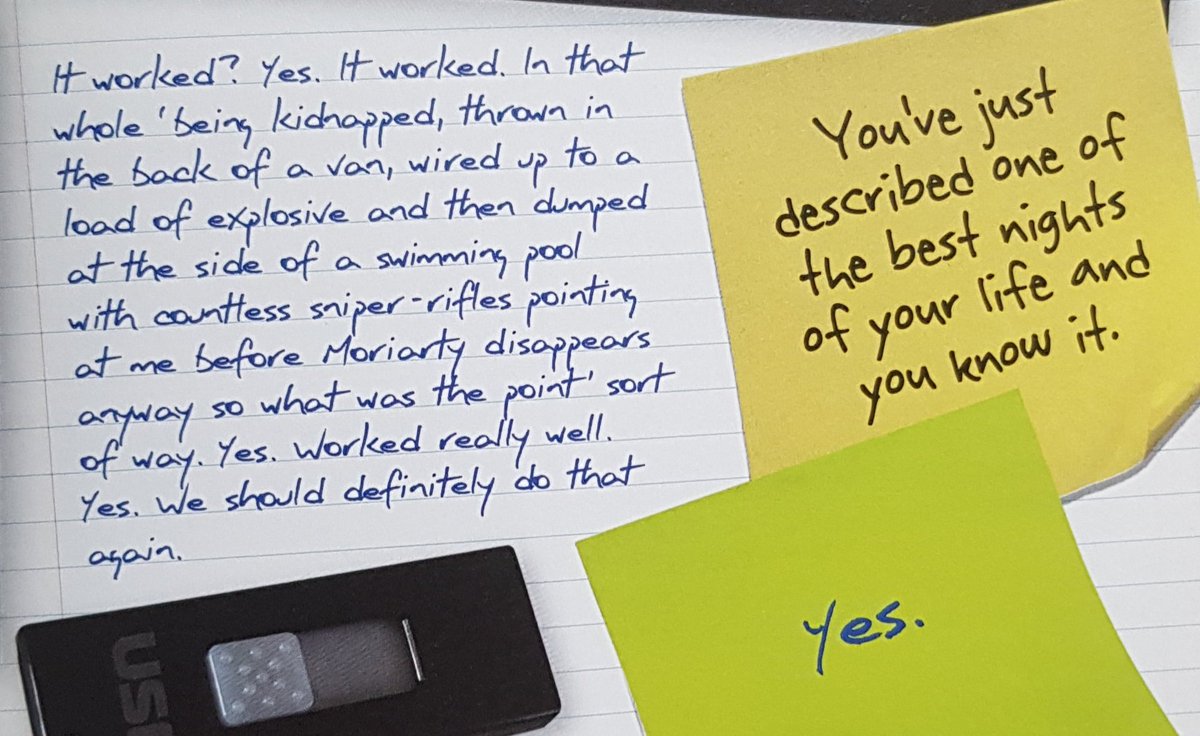 It worked? Yes. It worked. In that
whole 'being kidnapped, thrown in
the back of a van, wired up to a
load of explosive and then dumped
at the side of a swimming pool
with countless sniper-rifles pointing
at me before Moriarty disappears
anyway so what was the point' sort
of way. Yes. Worked really well.
Yes. We should definitely do that
again.
You've just
described one of
the best nights
of your life and
you know it.
Yes.
USB